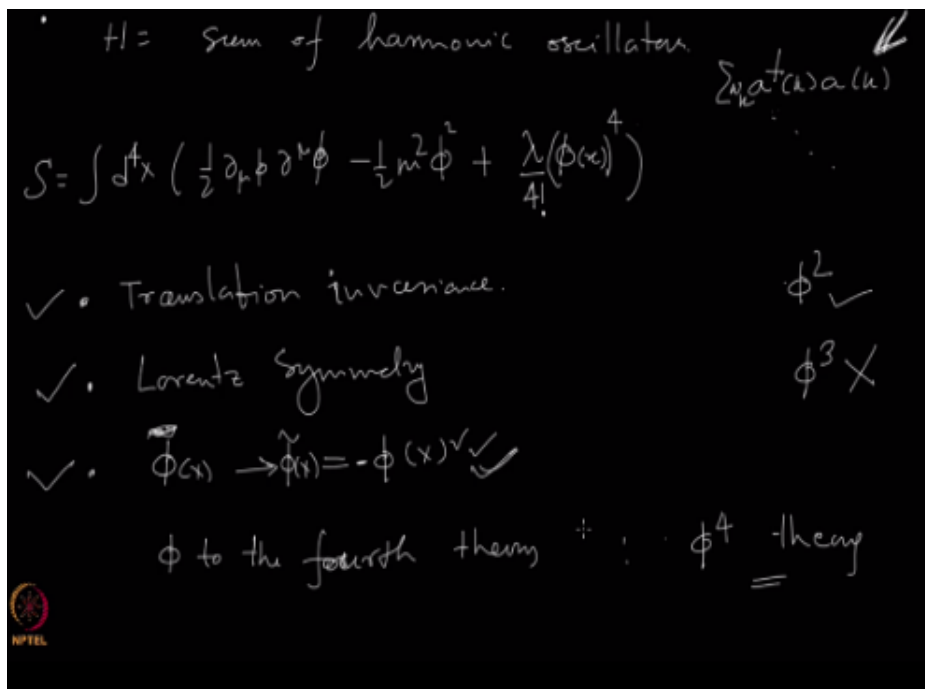 H = sum of harmonic oscillators.
Σ ωₖ a†(k) a(k)
S = ∫ d⁴x ( ½ ∂_μ ϕ ∂^μ ϕ − ½ m² ϕ² + λ/4! (ϕ(x))⁴ )
✓ • Translation invariance.
ϕ² ✓
✓ • Lorentz Symmetry
ϕ³ X
✓ • ϕ(x) → ϕ̃(x) = - ϕ(x) ✓ ✓
ϕ to the fourth theory : ϕ⁴ theory
NPTEL